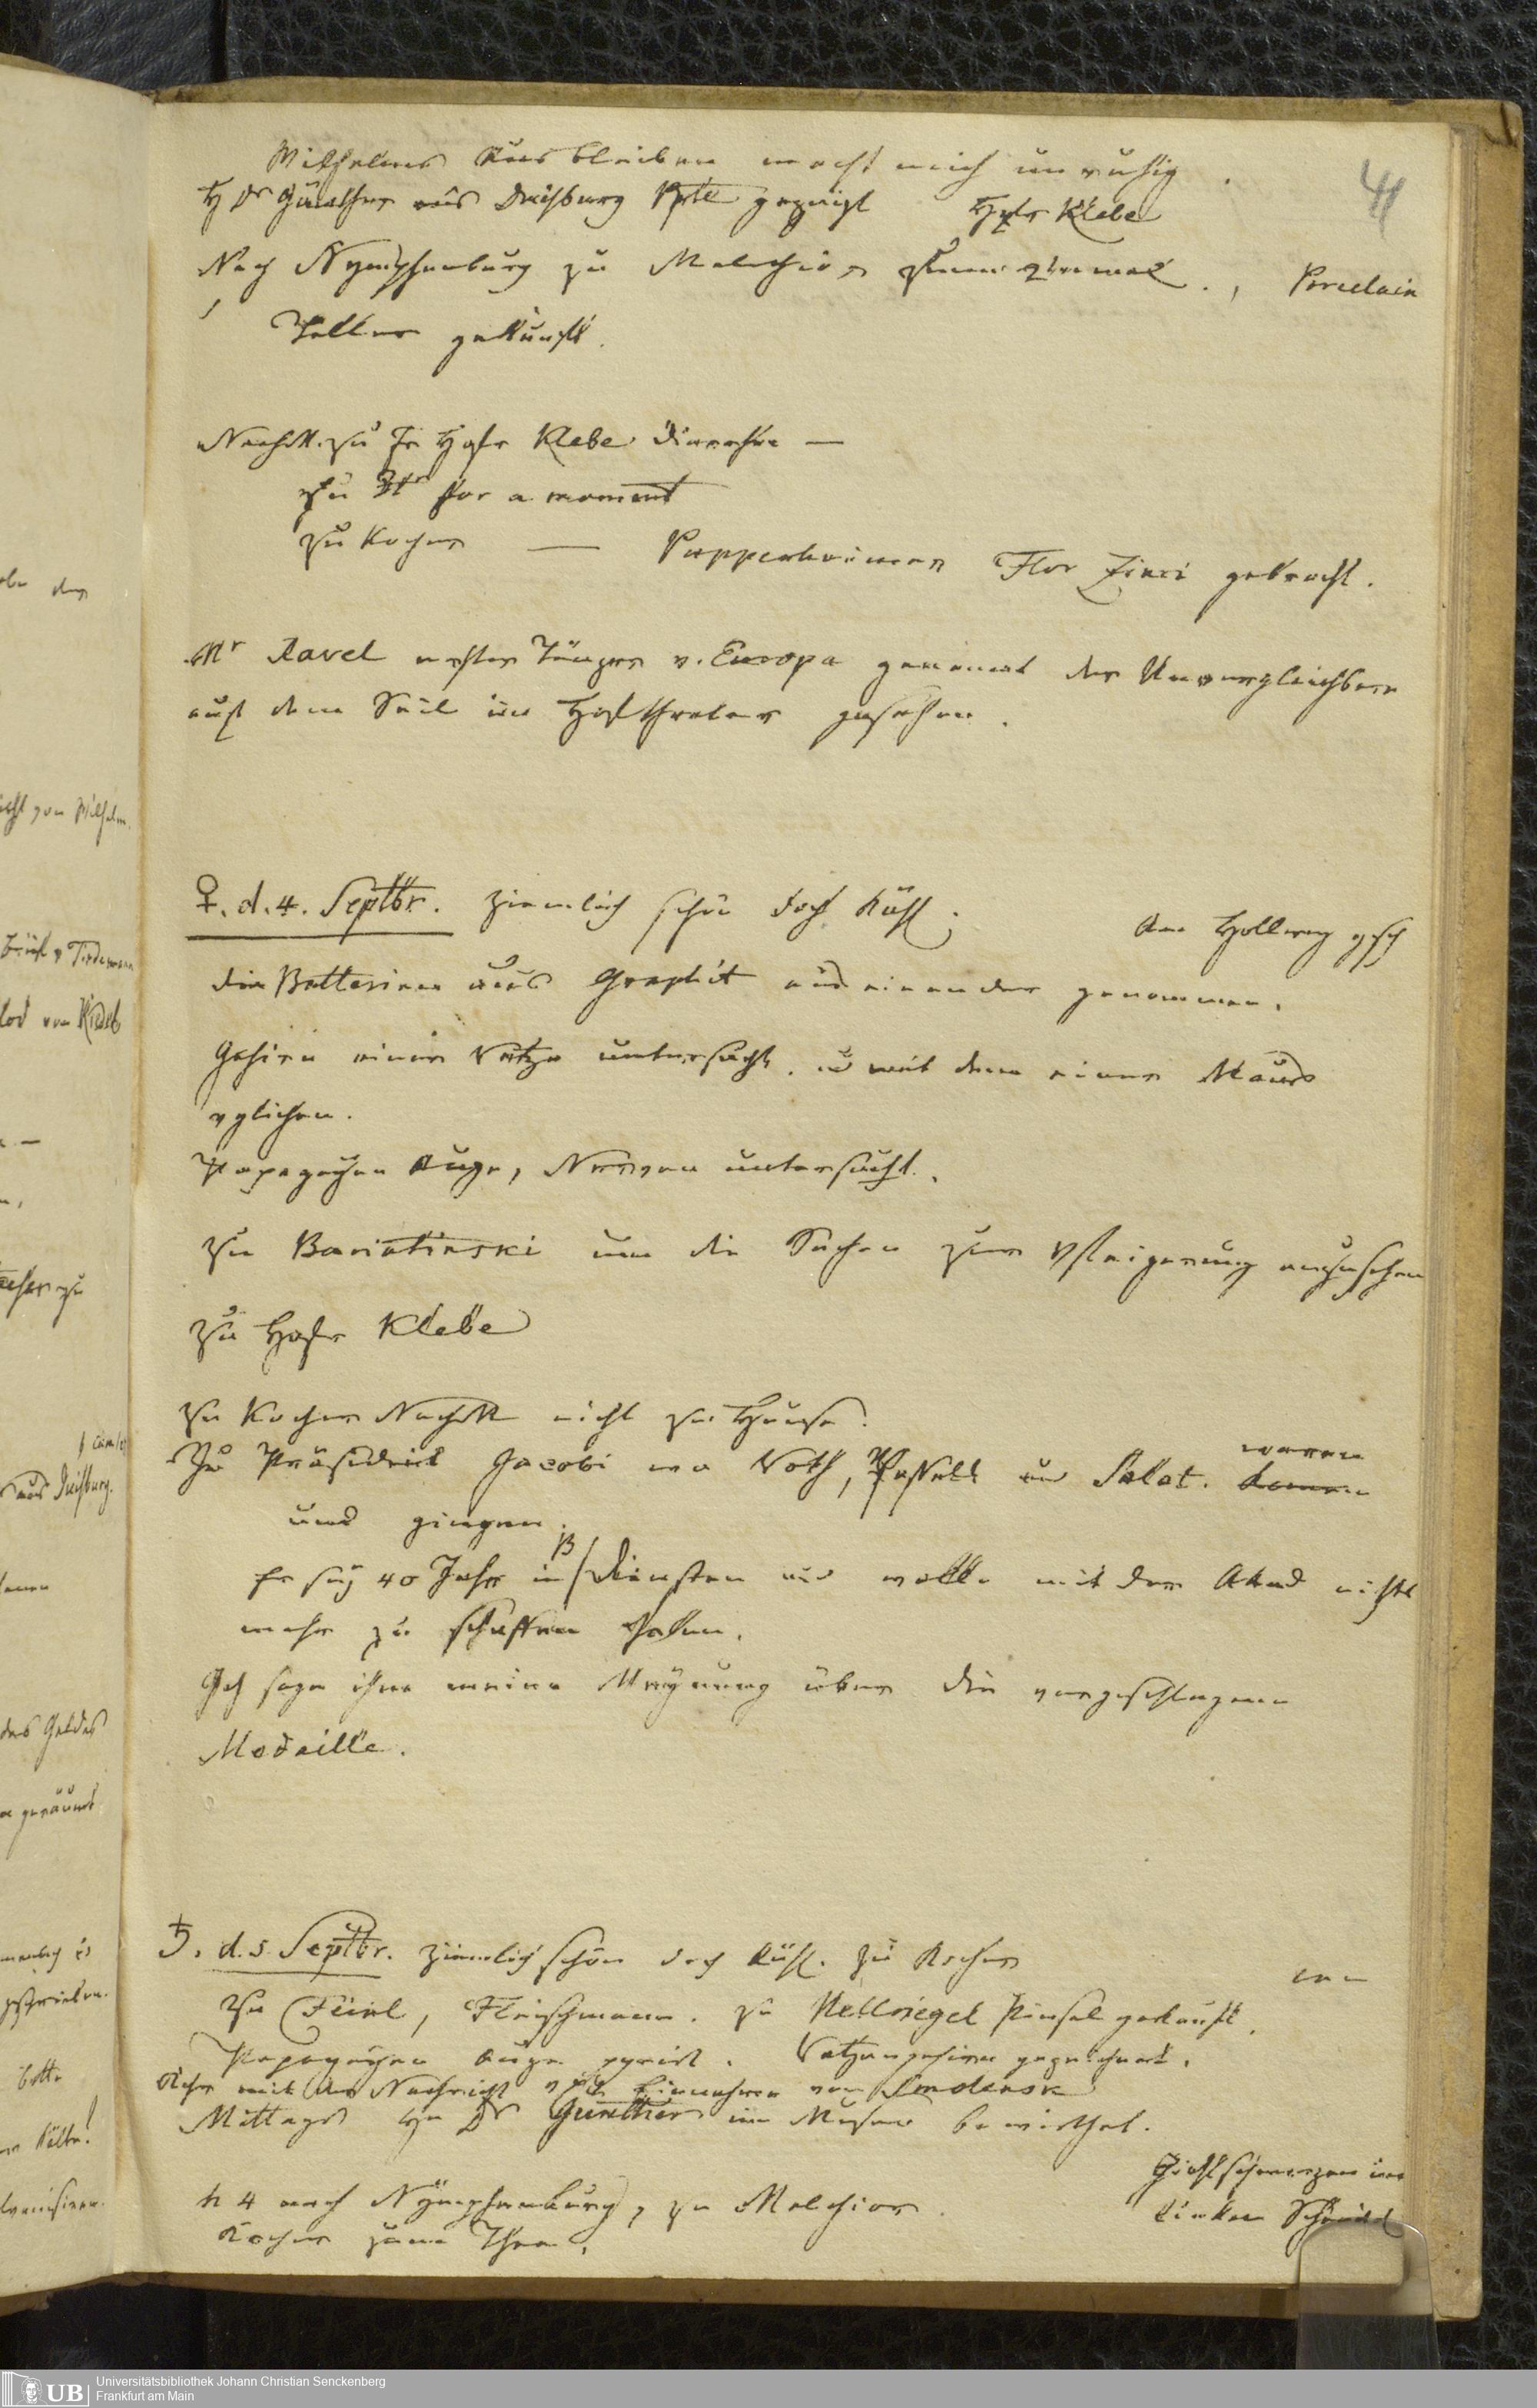 41
Wilhelms Ausbleiben macht mich unruhig.
H Dr Günther aus Duisburg Ppte gezeigt Hofr Klebe
Nach Nymphenburg zu Melchior zum 2ten mal., Porcelain
Teller gekauft.
Nachtt. zu Fr Hofr Klebe
zu for a moment
zu Kochs — Pappenheimer Flor Zinci gebracht.
Mr Ravel erster Tänzer v. Europa genannt der Unvergleichbare
auf dem Seil im Hoftheater gesehen.
♀. d. 4. Septbr. ziemlich schön doch kühl. An Hollweg gesch
die Batterieen aus Graphit aus einander genommen.
Gehirn einer Katze untersucht. u mit dem einer Maus
vglichen.
Papageyen Auge, Nerven untersucht.
zu Bariatinski um die Sachen zur Vsteigerung anzusehen
zu Hofr Klebe
zu Kochs Nachtt nicht zu Hause.
Zu Präsident Jacobi wo Roth, und Salat. waren
und gingen.
Er sey 40 Jahr in B/Diensten und wolle mit der Akad nichts
mehr zu schaffen haben.
Ich sage ihm meine Meynung über die vorgeschlagene
Medaille.
♄. d. 5 Septbr. ziemlich schön doch kühl. zu Kochs
zu Feinl, Fleischmann. zu Hellriegel Pinsel gekauft.
Papageyen Auge. Katzengehirn gezeichnet.
mit der Nachricht Einnahme von Smolensk
Mittags Hn Dr Günther im Museo bewirthet.
h 4 nach Nymphenburg, zu Melchior.
Gichtschmerzen im
linken Schenkel
Kochs zum Thee.
Universitätsbibliothek Johann Christian Senckenberg
Frankfurt am Main
UB